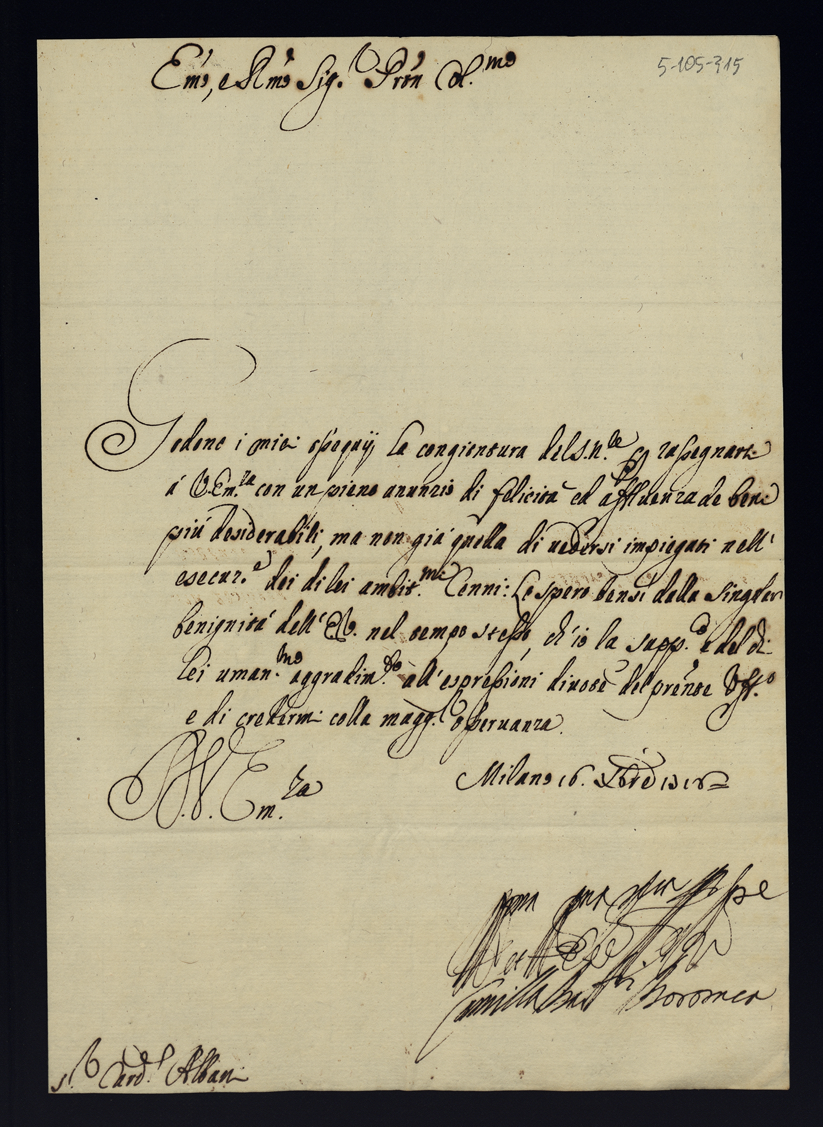 Em̃o, e Rmõ Sig.r Prõn Col.mo
5-105-315
Godono i miei ossequij la congiontura del S.N.le p rassegnarsi
á V.Em.za con un pieno anunzio di felicitá ed affluenza de beni
piú desiderabili, ma non giá quella di vedersi impiegati nell'
esecuz.e dei di lei ambit.mi Cenni: Lo spero bensí dalla singolar
benignitá dell' E.V. nel tempo stesso, ch'io la supp.co e del di
lei uman.mo aggradim.to all'espressioni divote del prẽnte Uff.o
e di credermi colla magg.r osservanza.
D. V. Em.za
Milano 16. Xbrẽ
Camilla Bar Borromea
S.r Card.l Albani